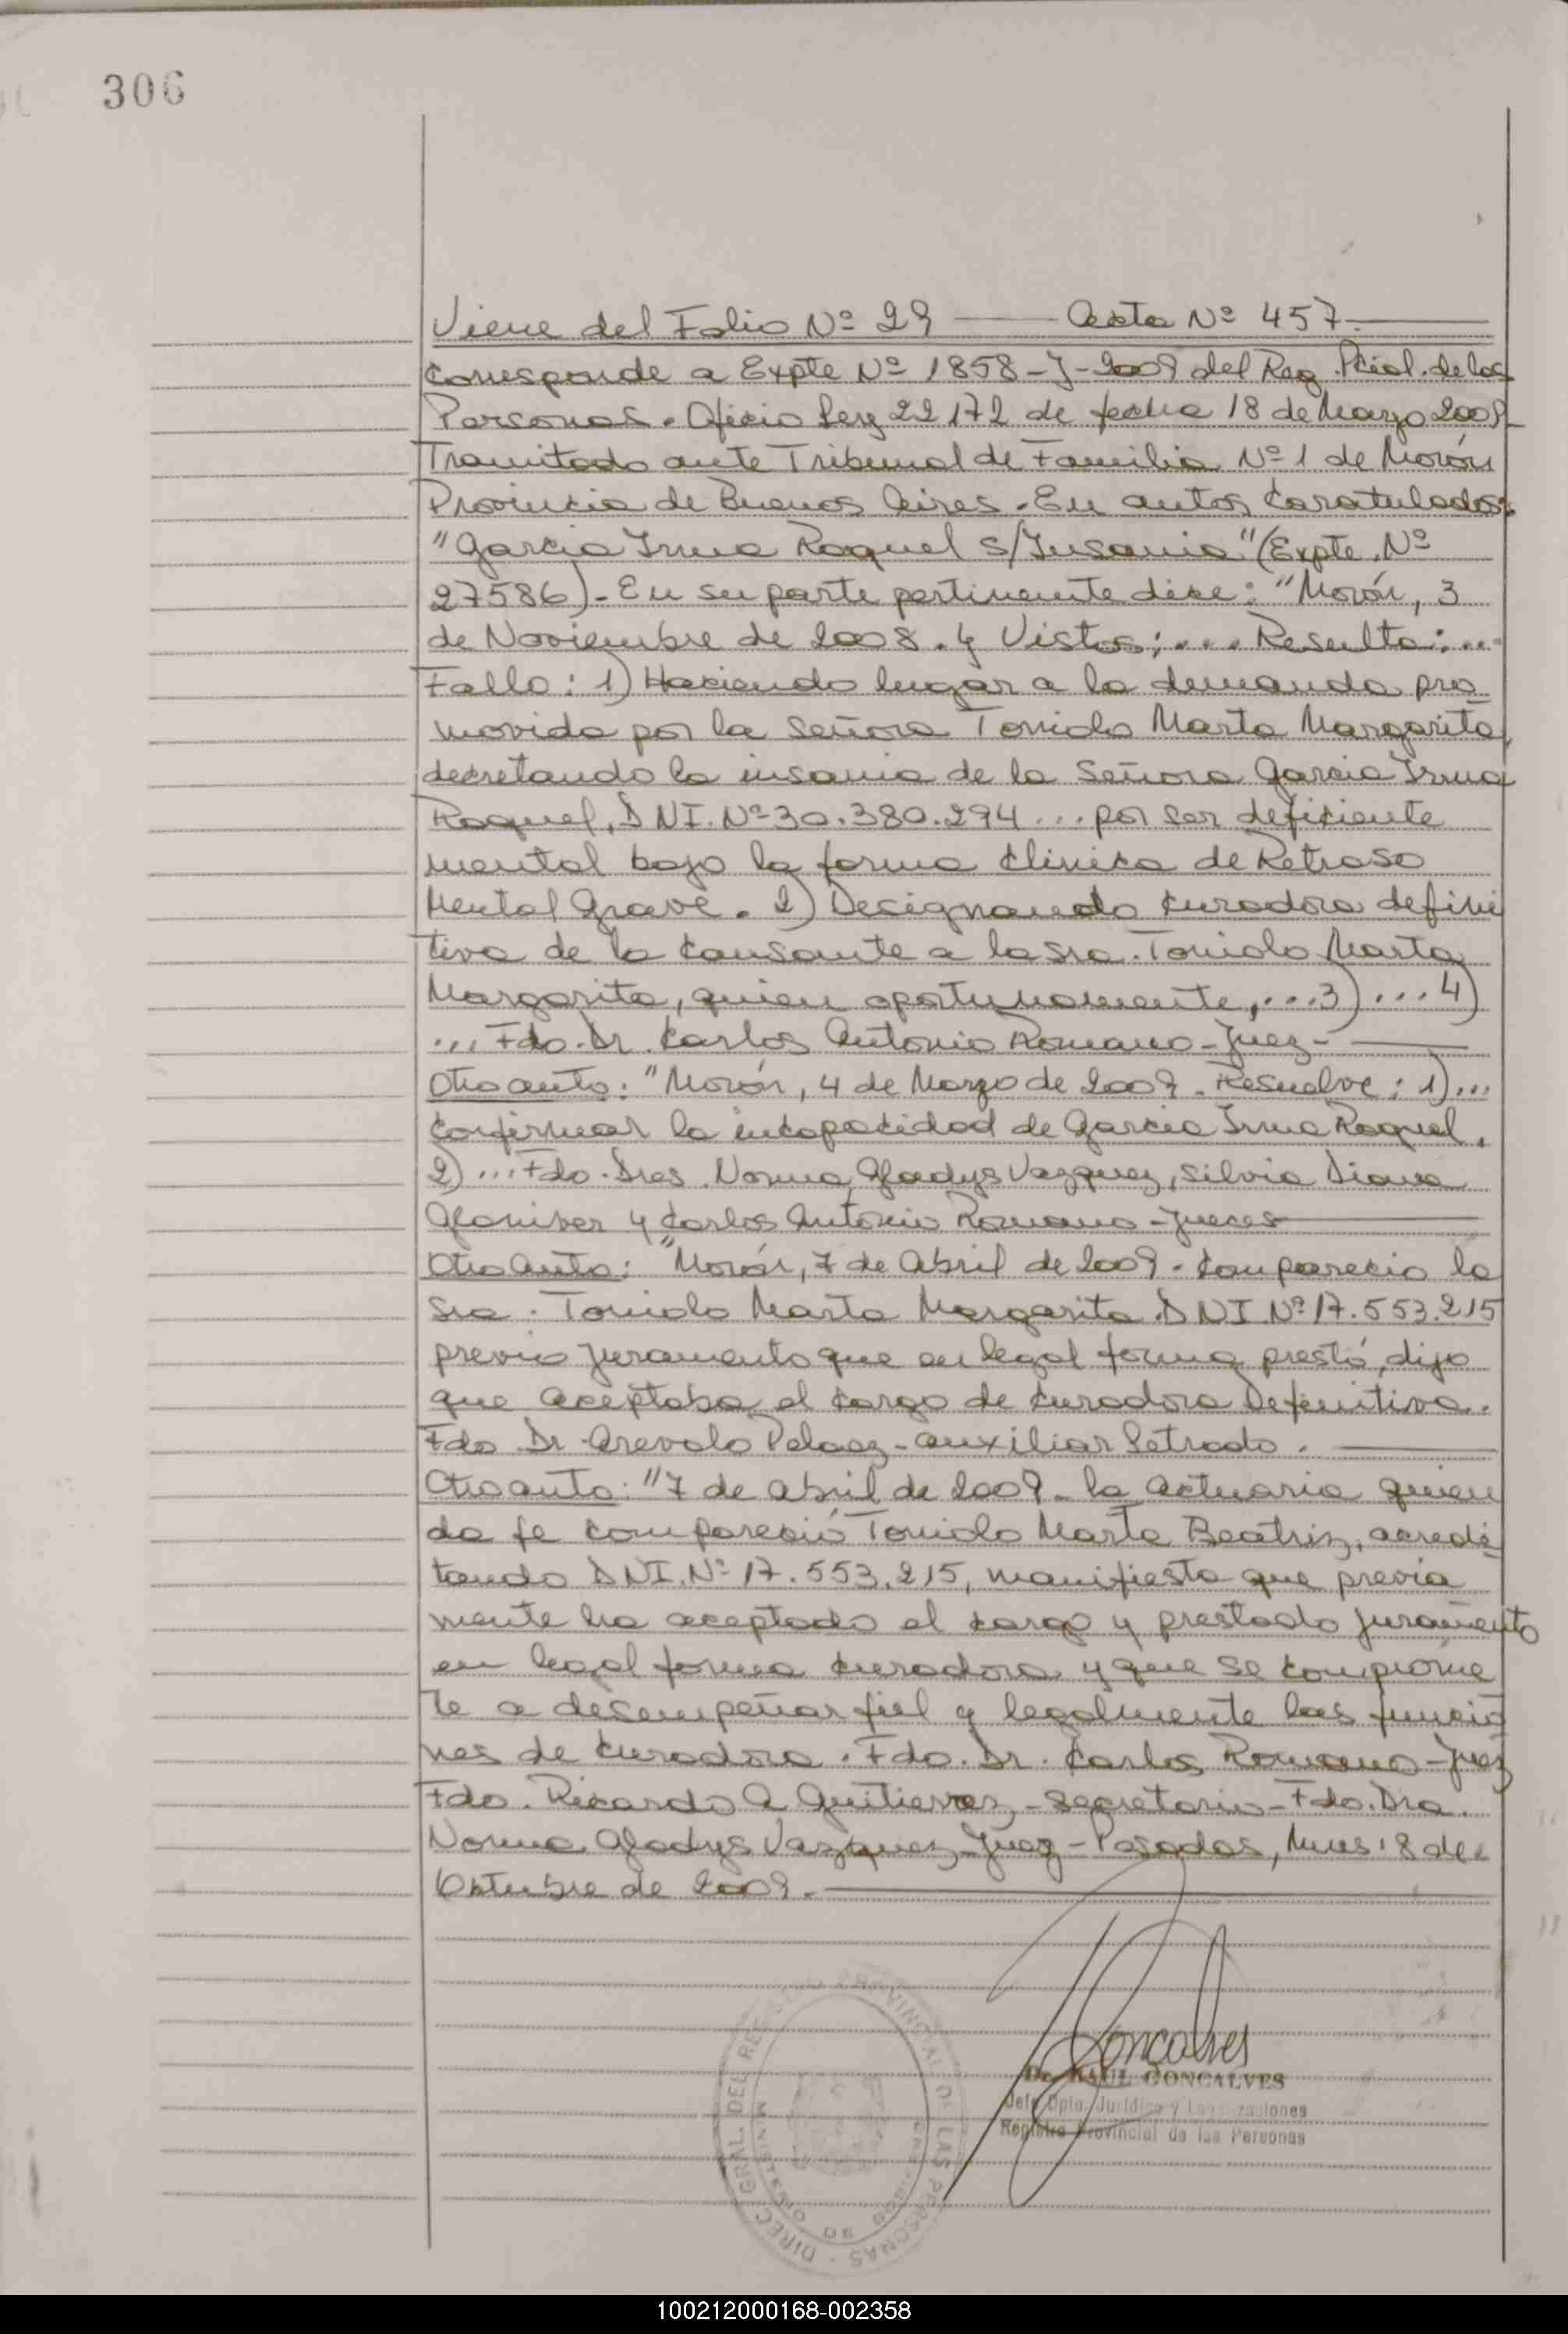 306
Viene del Folio Nº 29 —— Acta Nº 457.——
Corresponde a Expte Nº 1858-J-2009 del Reg. Pcial. de las
Personas. Oficio Ley 22172 de fecha 18 de Marzo 2009
Tramitado ante Tribunal de Familia Nº 1 de Morón
Provincia de Buenos Aires. En autos Caratulados:
"Garcia Irma Raquel s/Insania" (Expte. Nº
27586)- En su parte pertinente dice: "Morón, 3
de Noviembre de 2008. y Vistos;... Resulta:...
Fallo: 1) Haciendo lugar a la demanda pro
movida por la Señora Toniolo Marta Margarita,
decretando la insania de la Señora Garcia Irma
Raquel, DNI. Nº 30.380.294 ... por ser deficiente
mental bajo la forma Clinica de Retraso
Mental Grave. 2) Designando curadora defini
tiva de la Causante a la sra. Toniolo Marta
Margarita, quien oportunamente,...3)...4)
... Fdo. Dr. Carlos Antonio Romano-Juez-——
Otro auto: "Morón, 4 de Marzo de 2009. Resuelve: 1)...
Confirmar la incapacidad de Garcia Irma Raquel.
2)...Fdo. Dres. Norma Gladys Vazquez, Silvia Diana
y Carlos Antonio Romano-Jueces——
Otro Auto: "Morón, 7 de Abril de 2009. Comparecio la
Sra. Toniolo Marta Margarita DNI Nº 17.553.215
previo juramento que en legal forma prestó, dijo
que aceptaba el cargo de curadora Definitiva.
Fdo. Dr. Arevalo Pelaez-auxiliar Letrado.——
Otro auto: "7 de abril de 2009- la Actuaria quien
da fe compareció Toniolo Marta Beatriz, acredi
tando DNI. Nº 17.553.215, manifiesta que previa
mente ha aceptado el cargo y prestado juramento
en legal forma curadora y que se comprome
te a desempeñar fiel y legalmente las funcio
nes de curadora. Fdo. Dr. Carlos Romano-Juez
Fdo. Ricardo A Guitierrez,-Secretario-Fdo. Dra.
Norma Gladys Vazquez-Juez-Posadas, Mnes: 8 de
Octubre de 2009.——
Goncalves
Dr. RAUL GONCALVES
Jefe Dpto. Jurídico y
Registro Provincial de las Personas
DIREC. GRAL. DEL REGISTRO PROVINCIAL DE LAS PERSONAS
MINISTERIO DE GOBIERNO
100212000168-002358